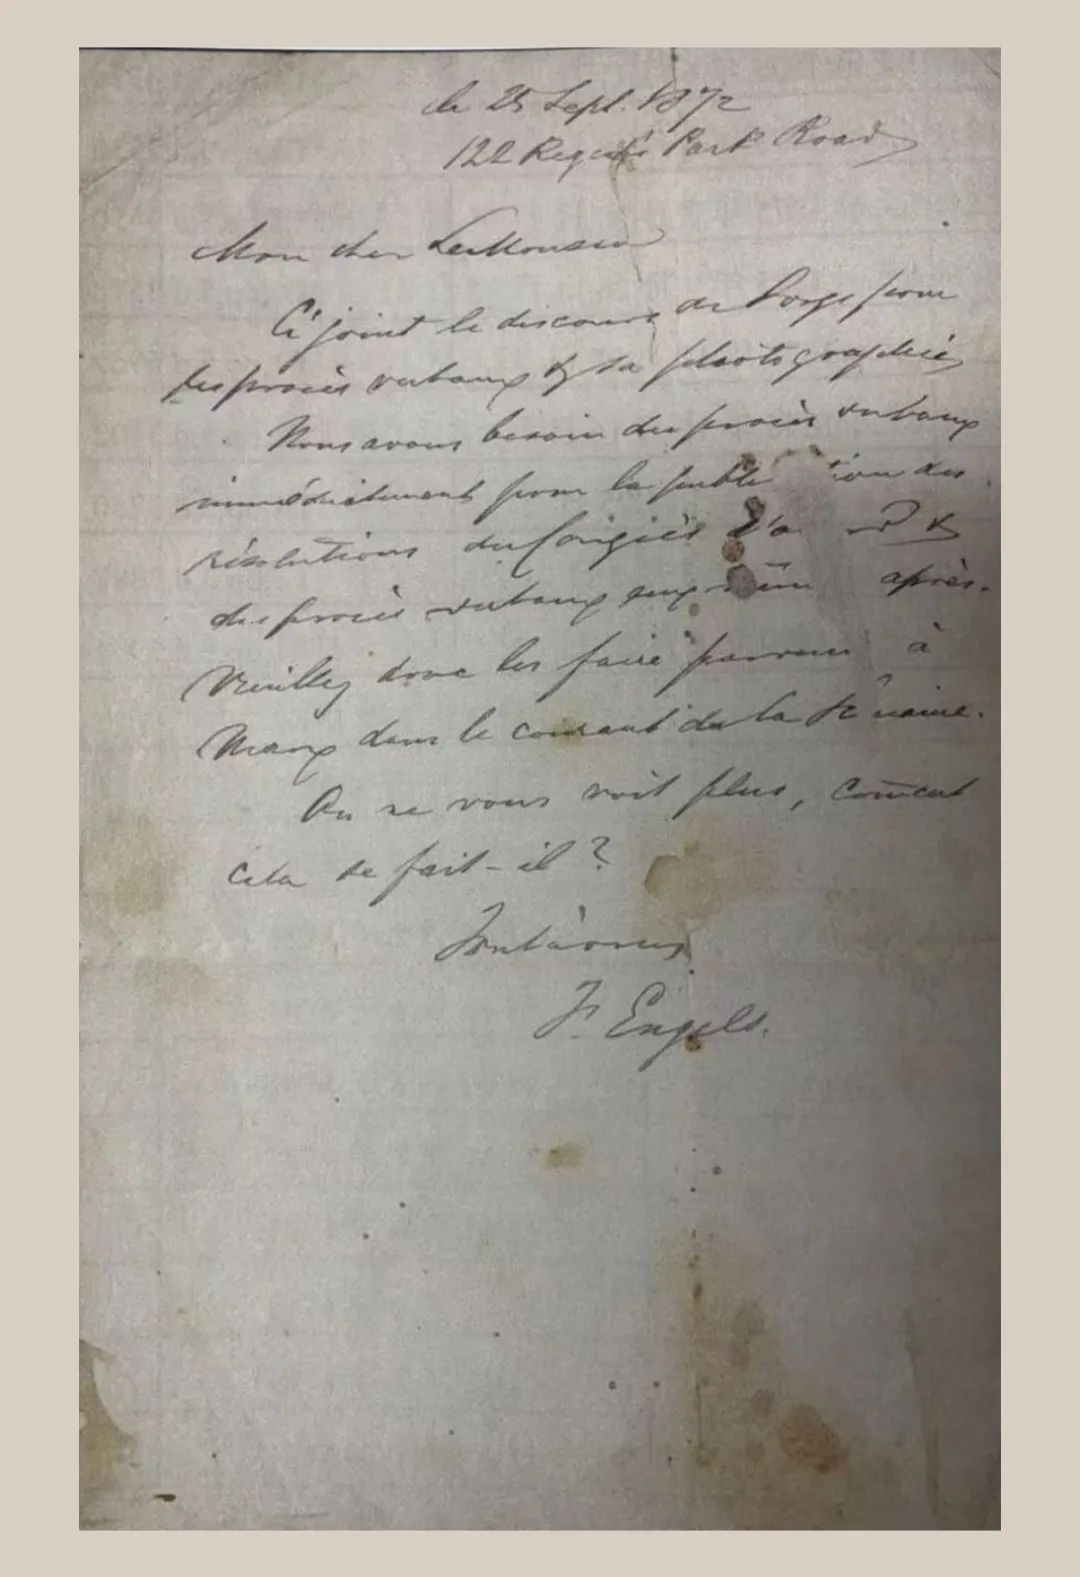 le 25 Sept. 1872
122 Regent's Park Road
Mon cher LeMoussu
Ci joint le discours de Sorge pour
les procès verbaux & sa photographie,
Nous avons besoin des procès verbaux
immédiatement pour la publi tion des
résolutions du Congrès d'a &
des procès verbaux eux après.
Veuillez donc les faire parvenir à
Marx dans le courant de la
On ne vous voit plus, comēent
cela se fait-il?
Tout à vous
F. Engels.